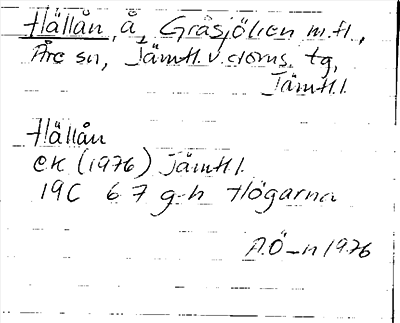 Hällån, å, Gråsjölien m.fl.,
Åre sn, Jämtl. v. doms. tg,
Jämtl.l.
Hällån
ek (1976) Jämtl.l.
19C 6 7 g-h Högarna
A.Ö-n 1976